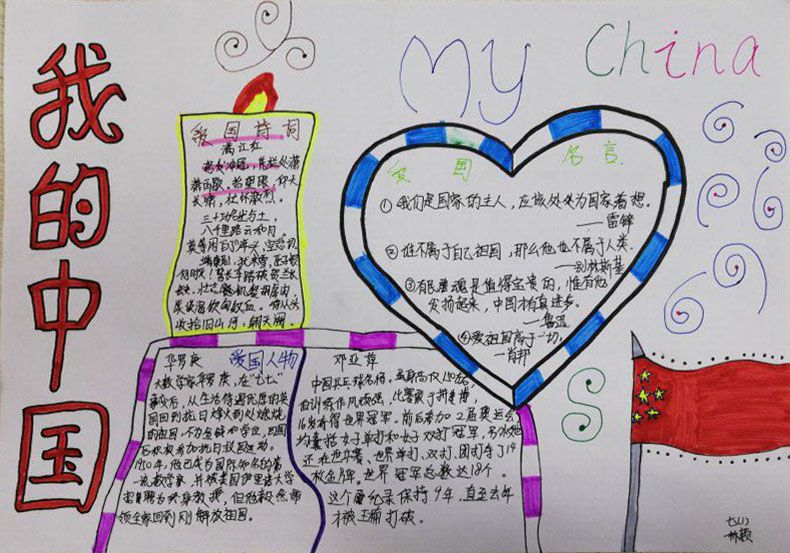 我的中国
My China
爱国诗词
满江红
怒发冲冠,凭栏处潇
潇雨歇,抬望眼,仰天
长啸,壮怀激烈。
三十功名尘与土,
八千里路云和月。
莫等闲白了少年头,空悲切
收拾旧山河,朝天阙。
爱国名言
①我们是国家的主人,应该处处为国家着想。
——雷锋
②谁不属于自己祖国,那么他也不属于人类。
——别林斯基
③有民魂是值得宝贵的,惟有他
发扬起来,中国才有真进步。
——鲁迅
④爱祖国高于一切。
——肖邦
爱国人物
华罗庚
大数学家华罗庚,在"七七"
事变后,从生活待遇优厚的英
国回到抗日烽火到处燃烧
的祖国,
积极参加抗日救国运动。
1950年,他已成为国际知名的第
一流数学家,并被美国伊里诺大学
聘为终身教授,但他毅然带
领全家回到刚解放祖国。
邓亚萍
中国乒乓球名将。虽身高仅150厘米,
但训练作风顽强,比赛敢于拼搏,
16岁夺得世界冠军,前后参加2届奥运会
均囊括女子单打和女子双打冠军,
还在世乒赛、世界单打、双打、团打夺了14
枚金牌。世界冠军总数达18个。
这个尊纪录保持9年,直至去年
才被王楠打破。
七(1)